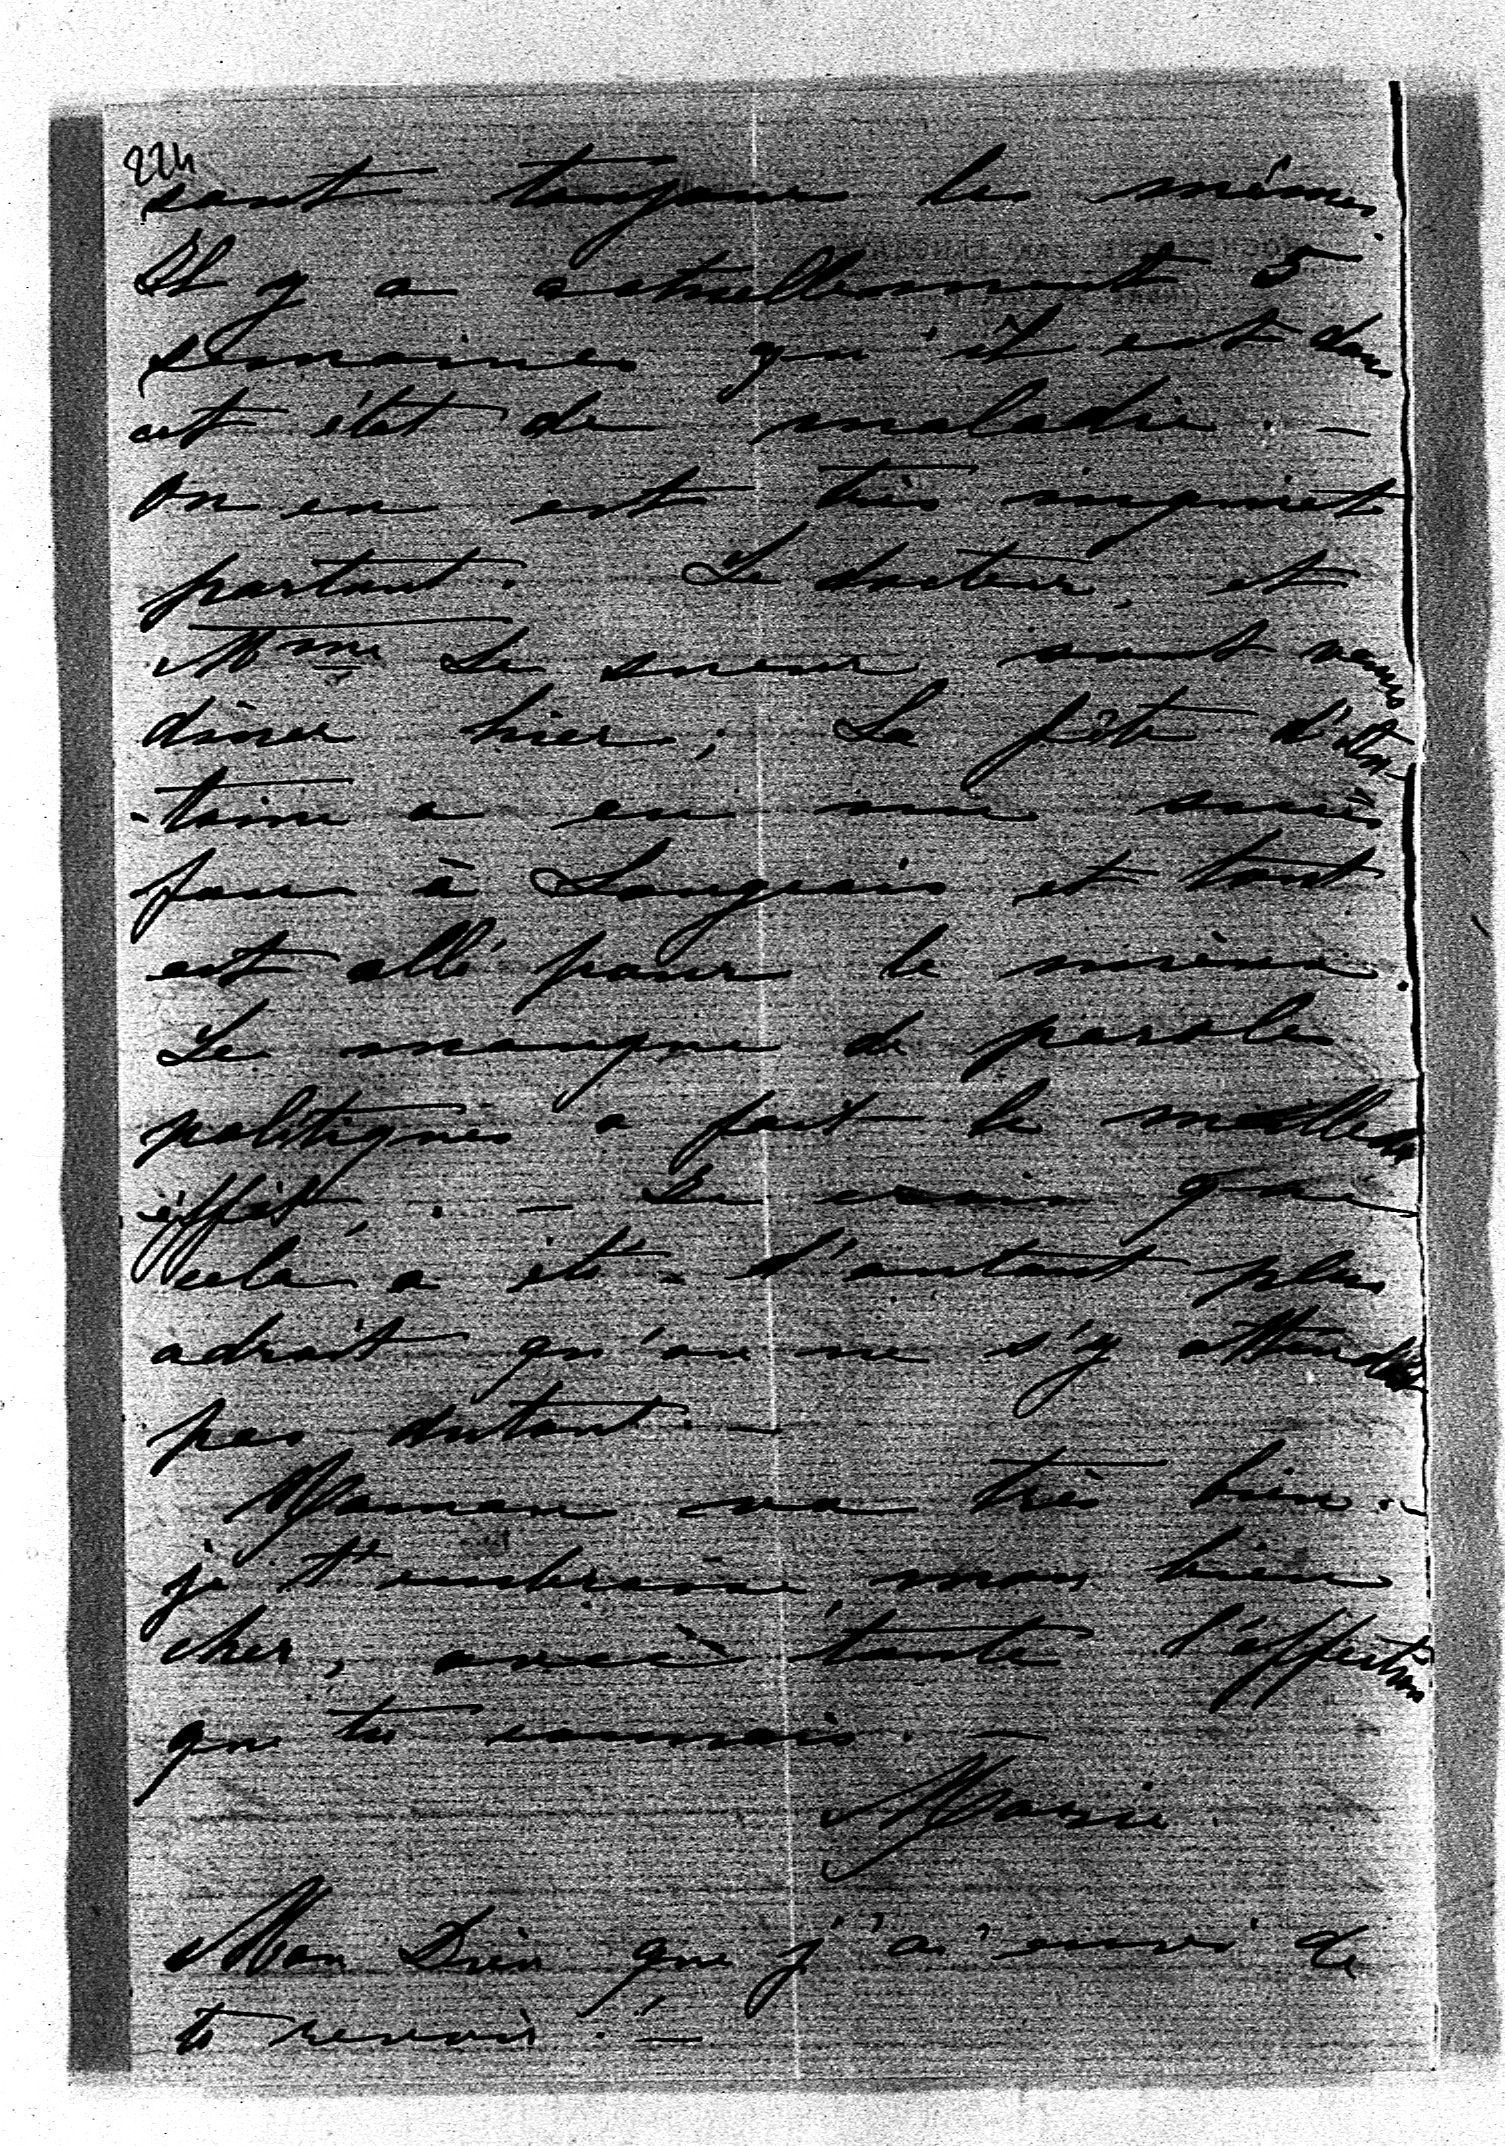 224
sont toujours les mêmes.
Il y a actuellement 5
semaines qu'il est dans
cet état de maladie. —
On en est très inquiet
partout. Le docteur et
Mme Le sueur sont venus
diner hier; La fête d'An-
-toine a eu un succès
fou à Langeais et tout
est allé pour le mieux.
Le manque de paroles
politiques a fait le meilleur
effet. — Je crois que
cela a été d'autant plus
adroit qu'on ne s'y attendait
pas autant. —
Maman va très bien. —
je t'embrasse mon bien
cher, avec toute l'affection
que tu connais. —
Marie
Mon Dieu que j'ai envi de
te revoir! —